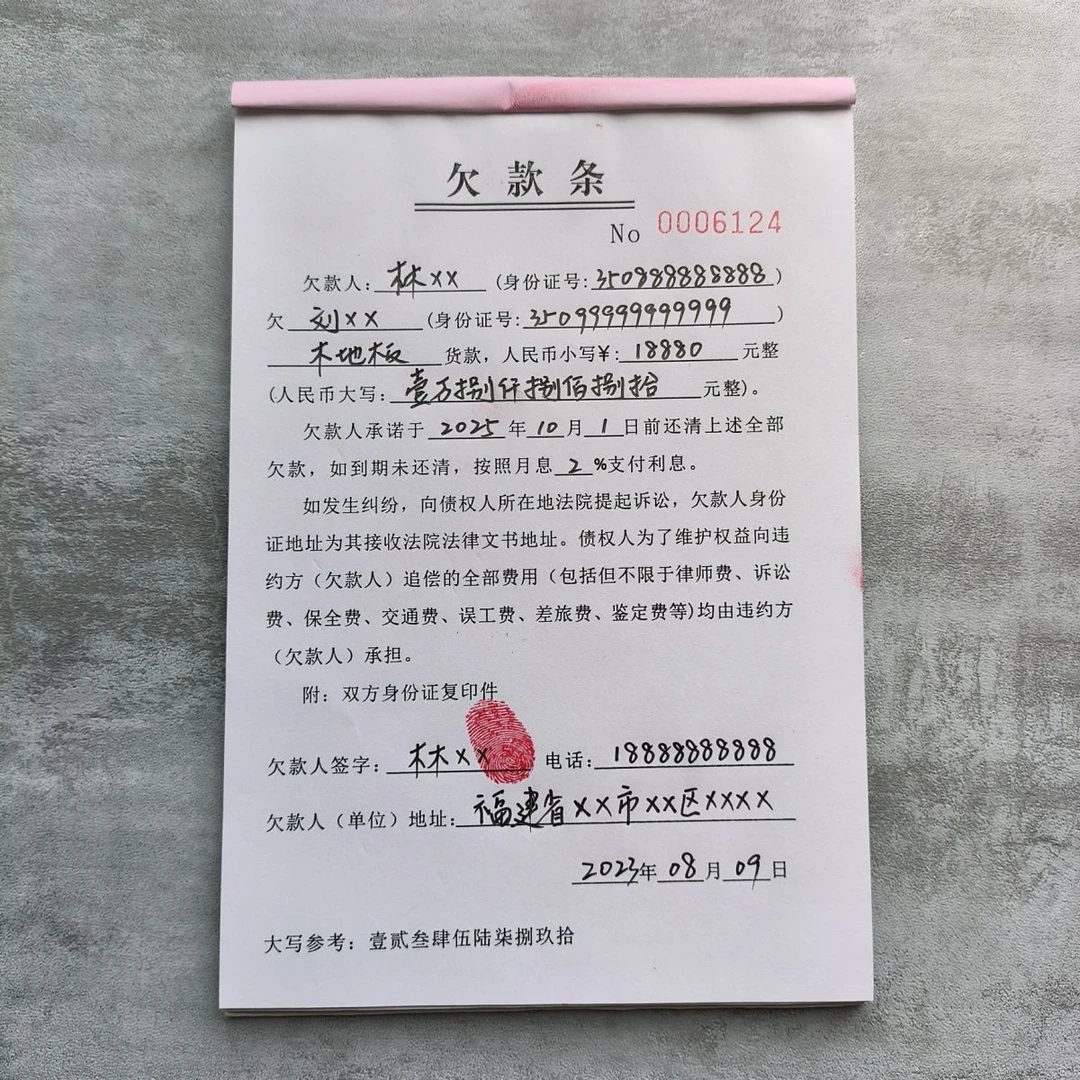 欠款条
No 0006124
欠款人：林×× (身份证号:350888888888)
欠 刘×× (身份证号:35099999999999)
木地板 货款，人民币小写¥：18880 元整
(人民币大写：壹万捌仟捌佰捌拾 元整)。
欠款人承诺于 2025 年 10 月 1 日前还清上述全部
欠款，如到期未还清，按照月息 2 %支付利息。
如发生纠纷，向债权人所在地法院提起诉讼，欠款人身份
证地址为其接收法院法律文书地址。债权人为了维护权益向违
约方（欠款人）追偿的全部费用（包括但不限于律师费、诉讼
费、保全费、交通费、误工费、差旅费、鉴定费等)均由违约方
（欠款人）承担。
附：双方身份证复印件
欠款人签字：林×× 电话：18888888888
欠款人（单位）地址：福建省××市××区××××
2023年 08 月 09 日
大写参考：壹贰叁肆伍陆柒捌玖拾